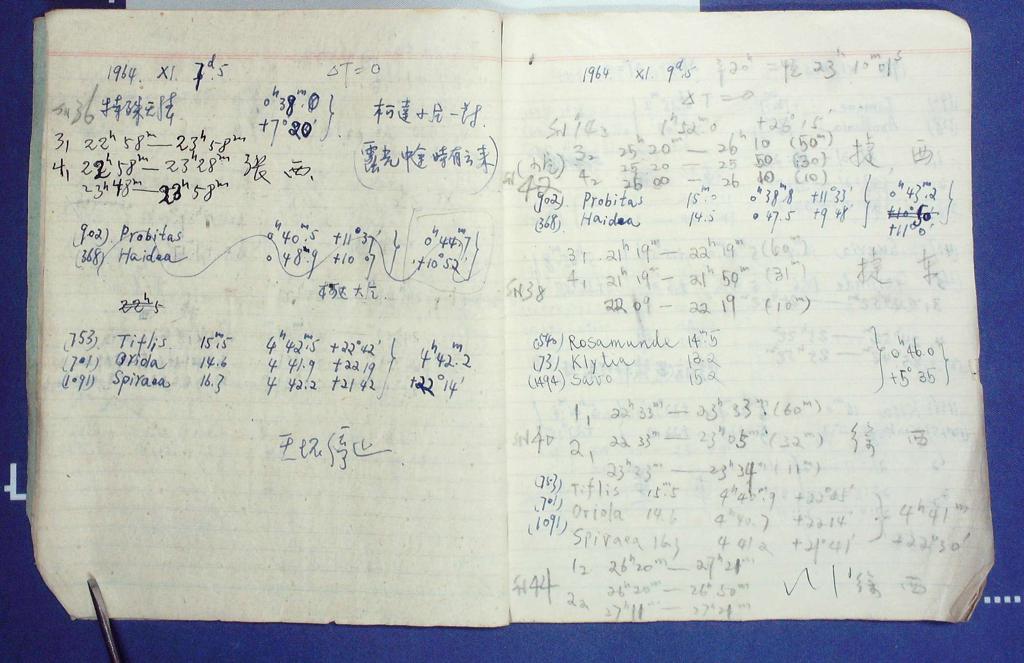 1964. XI. 7ᵈ.5 ΔT=0
SN36 特殊天体 0ʰ38ᵐ.0
+7°20′
3₁ 22ʰ58ᵐ — 23ʰ58ᵐ
4₁ 22ʰ58ᵐ — 23ʰ28ᵐ 张 西
23ʰ48ᵐ — 23ʰ58ᵐ
(902) Probitas 0ʰ40ᵐ.5 +11°37′ 0ʰ44ᵐ.7
(368) Haidea 0 48.9 +10 07 +10°52′
22ʰ5
(753) Tiflis 15ᵐ.5 4ʰ42ᵐ.5 +22°42′ 4ʰ42ᵐ.2
(701) Oriola 14.6 4 41.9 +22 19 +22°14′
(1091) Spiraea 16.3 4 42.2 +21 42
1964 XI. 9ᵈ.5 20ʰ = 23ʰ10ᵐ01ˢ
ΔT=0
1ʰ52ᵐ.0 +26°15′
3₂ 25ʰ20ᵐ — 26ʰ10 (50ᵐ) 捷 西
25 20 — 25 50 (30)
4₂ 26 00 — 26 10 (10)
SN42
(902) Probitas 15ᵐ.0 0ʰ38ᵐ.8 +11°33′ 0ʰ43ᵐ.2
(368) Haidea 14.5 0 47.5 +9 48′ +11°0′
3₁ 21ʰ19ᵐ — 22ʰ19ᵐ (60ᵐ) 捷 东
4₁ 21ʰ19ᵐ — 21ʰ50ᵐ (31ᵐ)
SN38 22 09 — 22 19 (10ᵐ)
(540) Rosamunde 14ᵐ.5 0ʰ46.0
(73) Klytia 13.2 +5°35
(1494) Savo 15.2
1₁ 22ʰ33ᵐ — 23ʰ33ᵐ (60ᵐ)
SN40 2₁ 22 33ᵐ — 23ʰ05ᵐ (32ᵐ) 西
23ʰ23ᵐ — 23ʰ34ᵐ (11ᵐ)
(753) Tiflis 15ᵐ.5 4ʰ41ᵐ
(701) Oriola 14.6 4 40.7 +22 14′ +22°30′
(1091) Spiraea 16.3 4 41.2 +21°41′
1₂ 26ʰ20ᵐ — 27ʰ21ᵐ
SN44 26ʰ20ᵐ — 26ʰ50ᵐ 西
2₂ 27ʰ11ᵐ — 27ʰ21ᵐ